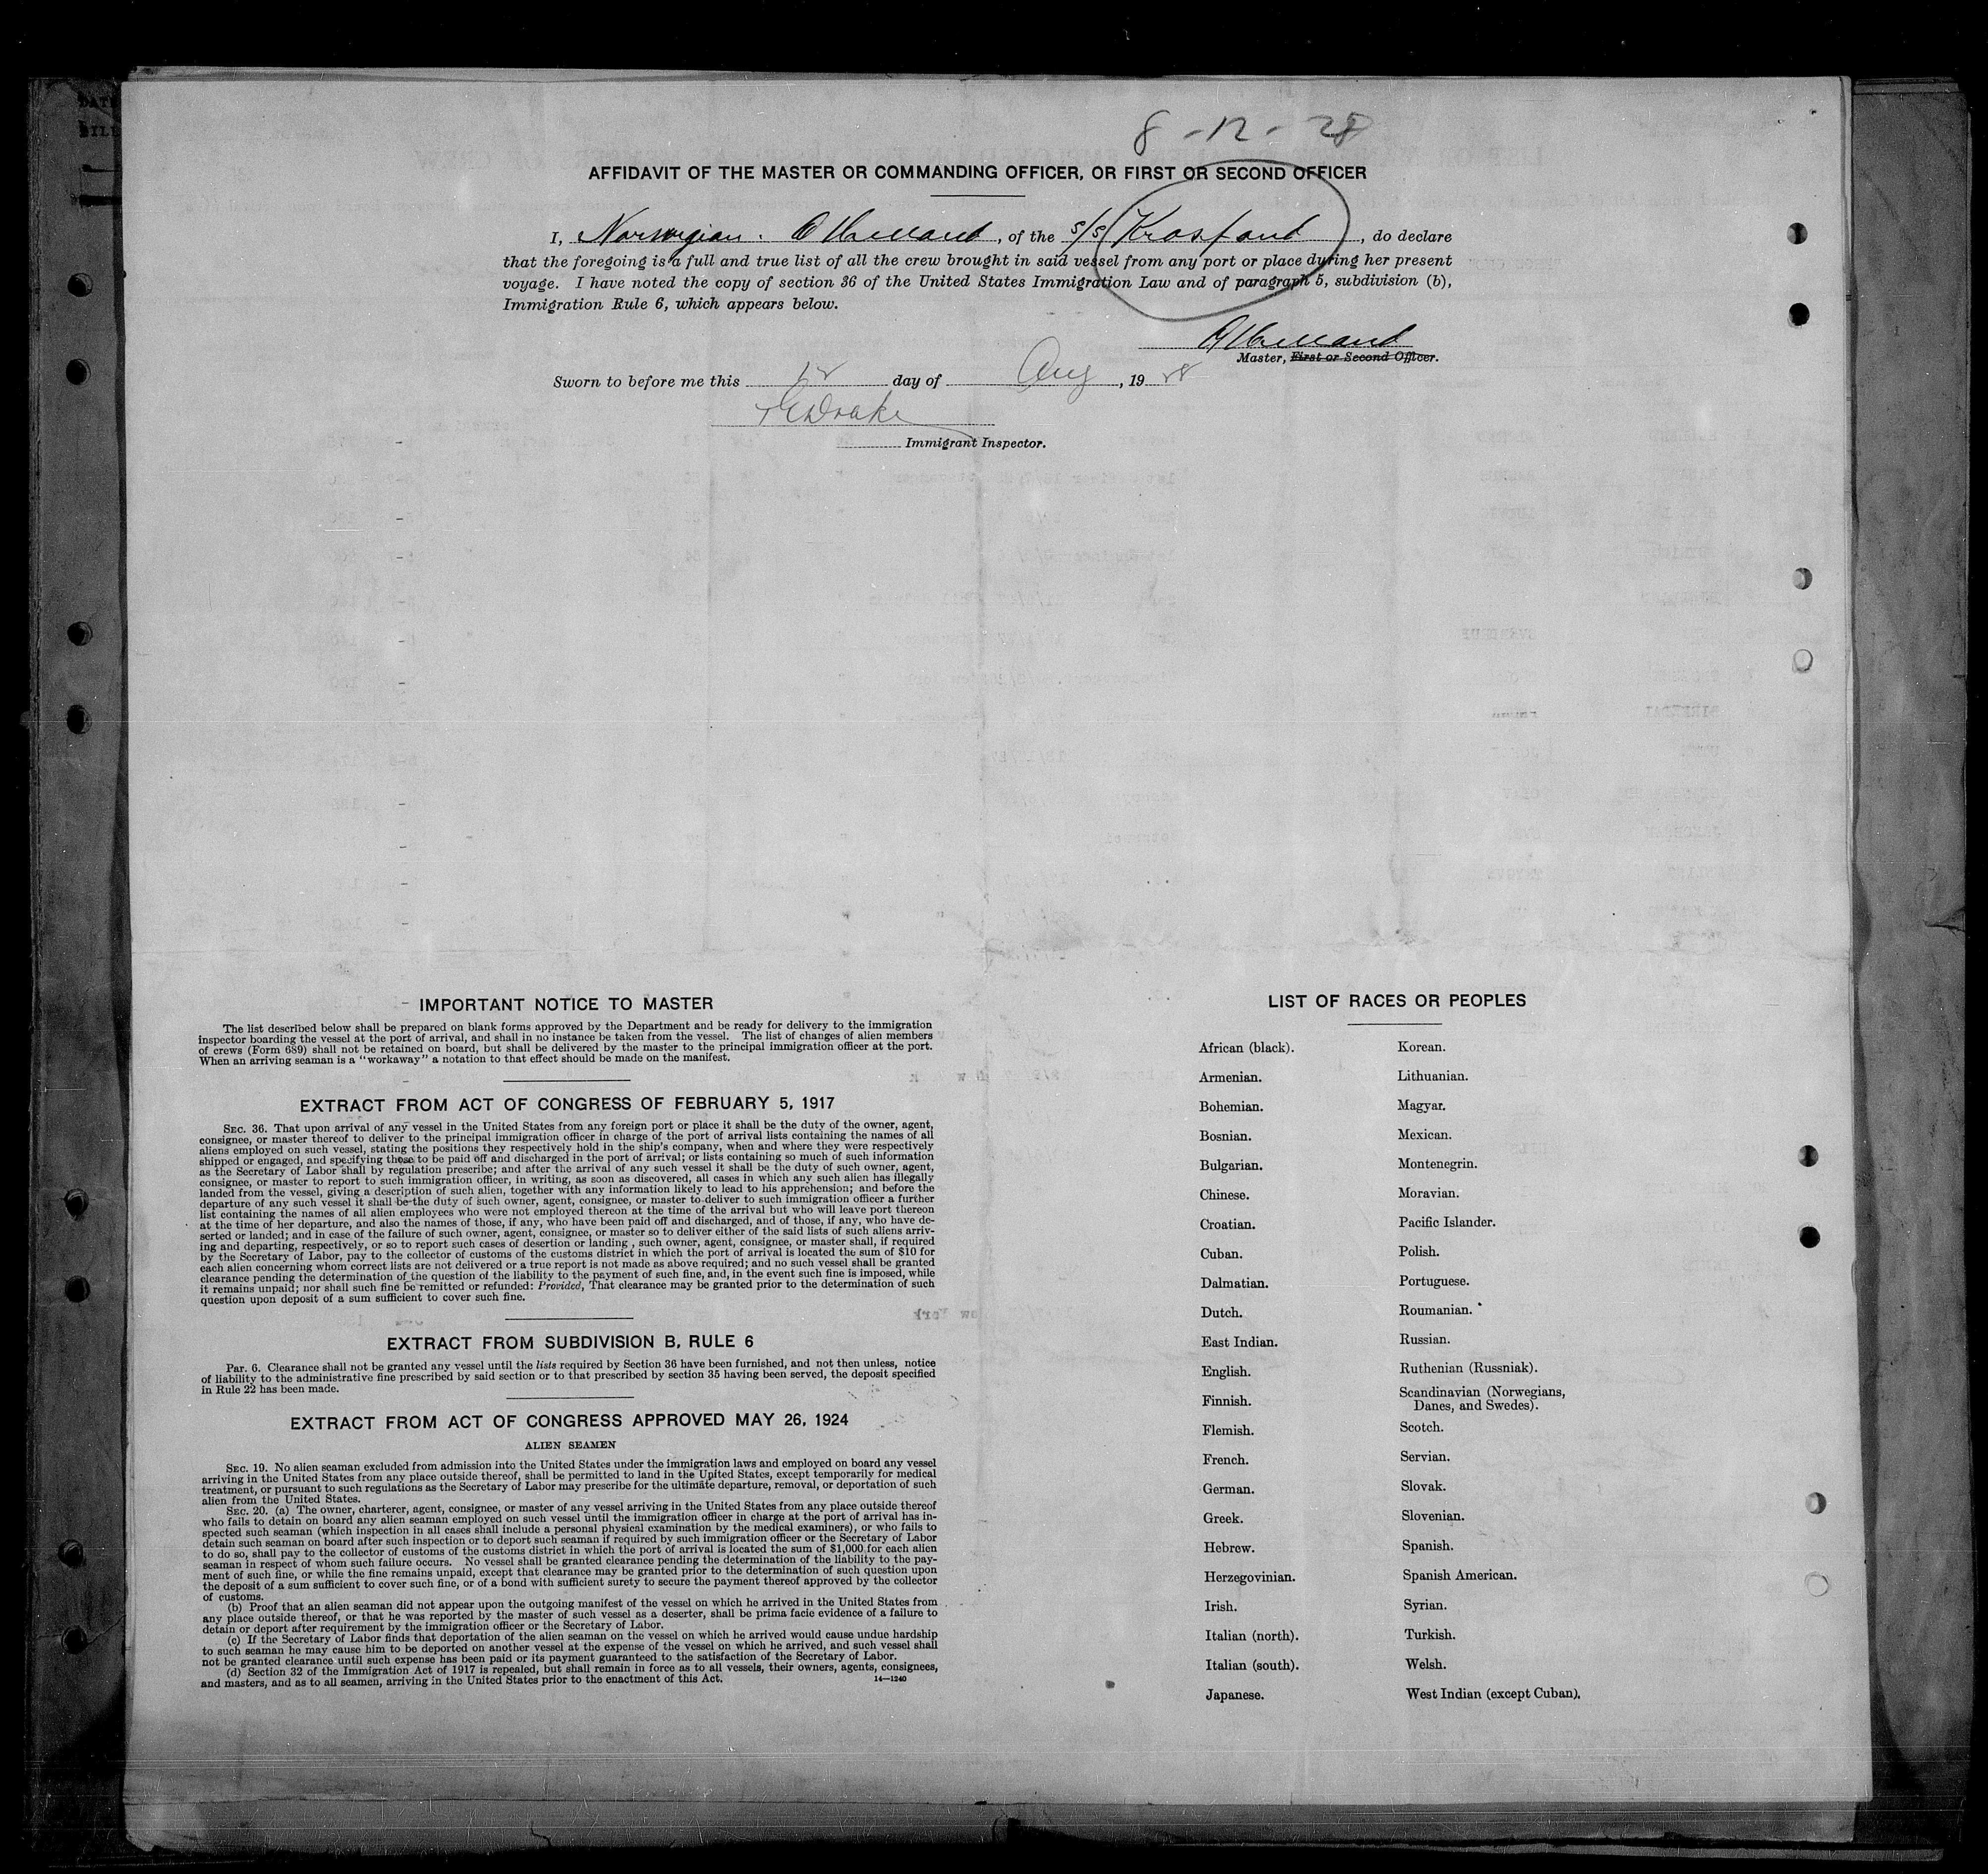 8 - 12 - 28
AFFIDAVIT OF THE MASTER OR COMMANDING OFFICER, OR FIRST OR SECOND OFFICER
I, Norwegian. , of the s/s Krosfond , do declare
that the foregoing is a full and true list of all the crew brought in said vessel from any port or place during her present
voyage. I have noted the copy of section 36 of the United States Immigration Law and of paragraph 5, subdivision (b),
Immigration Rule 6, which appears below.
Master, First or Second Officer.
Sworn to before me this 12 day of Aug , 19 28
Drake
Immigrant Inspector.
IMPORTANT NOTICE TO MASTER
The list described below shall be prepared on blank forms approved by the Department and be ready for delivery to the immigration
inspector boarding the vessel at the port of arrival, and shall in no instance be taken from the vessel. The list of changes of alien members
of crews (Form 689) shall not be retained on board, but shall be delivered by the master to the principal immigration officer at the port.
When an arriving seaman is a "workaway" a notation to that effect should be made on the manifest.
EXTRACT FROM ACT OF CONGRESS OF FEBRUARY 5, 1917
SEC. 36. That upon arrival of any vessel in the United States from any foreign port or place it shall be the duty of the owner, agent,
consignee, or master thereof to deliver to the principal immigration officer in charge of the port of arrival lists containing the names of all
aliens employed on such vessel, stating the positions they respectively hold in the ship's company, when and where they were respectively
shipped or engaged, and specifying those to be paid off and discharged in the port of arrival; or lists containing so much of such information
as the Secretary of Labor shall by regulation prescribe; and after the arrival of any such vessel it shall be the duty of such owner, agent,
consignee, or master to report to such immigration officer, in writing, as soon as discovered, all cases in which any such alien has illegally
landed from the vessel, giving a description of such alien, together with any information likely to lead to his apprehension; and before the
departure of any such vessel it shall be the duty of such owner, agent, consignee, or master to deliver to such immigration officer a further
list containing the names of all alien employees who were not employed thereon at the time of the arrival but who will leave port thereon
at the time of her departure, and also the names of those, if any, who have been paid off and discharged, and of those, if any, who have de-
serted or landed; and in case of the failure of such owner, agent, consignee, or master so to deliver either of the said lists of such aliens arriv-
ing and departing, respectively, or so to report such cases of desertion or landing , such owner, agent, consignee, or master shall, if required
by the Secretary of Labor, pay to the collector of customs of the customs district in which the port of arrival is located the sum of $10 for
each alien concerning whom correct lists are not delivered or a true report is not made as above required; and no such vessel shall be granted
clearance pending the determination of the question of the liability to the payment of such fine, and, in the event such fine is imposed, while
it remains unpaid; nor shall such fine be remitted or refunded: Provided, That clearance may be granted prior to the determination of such
question upon deposit of a sum sufficient to cover such fine.
EXTRACT FROM SUBDIVISION B, RULE 6
Par. 6. Clearance shall not be granted any vessel until the lists required by Section 36 have been furnished, and not then unless, notice
of liability to the administrative fine prescribed by said section or to that prescribed by section 35 having been served, the deposit specified
in Rule 22 has been made.
EXTRACT FROM ACT OF CONGRESS APPROVED MAY 26, 1924
ALIEN SEAMEN
SEC. 19. No alien seaman excluded from admission into the United States under the immigration laws and employed on board any vessel
arriving in the United States from any place outside thereof, shall be permitted to land in the United States, except temporarily for medical
treatment, or pursuant to such regulations as the Secretary of Labor may prescribe for the ultimate departure, removal, or deportation of such
alien from the United States.
SEC. 20. (a) The owner, charterer, agent, consignee, or master of any vessel arriving in the United States from any place outside thereof
who fails to detain on board any alien seaman employed on such vessel until the immigration officer in charge at the port of arrival has in-
spected such seaman (which inspection in all cases shall include a personal physical examination by the medical examiners), or who fails to
detain such seaman on board after such inspection or to deport such seaman if required by such immigration officer or the Secretary of Labor
to do so, shall pay to the collector of customs of the customs district in which the port of arrival is located the sum of $1,000 for each alien
seaman in respect of whom such failure occurs. No vessel shall be granted clearance pending the determination of the liability to the pay-
ment of such fine, or while the fine remains unpaid, except that clearance may be granted prior to the determination of such question upon
the deposit of a sum sufficient to cover such fine, or of a bond with sufficient surety to secure the payment thereof approved by the collector
of customs.
(b) Proof that an alien seaman did not appear upon the outgoing manifest of the vessel on which he arrived in the United States from
any place outside thereof, or that he was reported by the master of such vessel as a deserter, shall be prima facie evidence of a failure to
detain or deport after requirement by the immigration officer or the Secretary of Labor.
(c) If the Secretary of Labor finds that deportation of the alien seaman on the vessel on which he arrived would cause undue hardship
to such seaman he may cause him to be deported on another vessel at the expense of the vessel on which he arrived, and such vessel shall
not be granted clearance until such expense has been paid or its payment guaranteed to the satisfaction of the Secretary of Labor.
(d) Section 32 of the Immigration Act of 1917 is repealed, but shall remain in force as to all vessels, their owners, agents, consignees,
and masters, and as to all seamen, arriving in the United States prior to the enactment of this Act. 14—1240
LIST OF RACES OR PEOPLES
African (black).
Armenian.
Bohemian.
Bosnian.
Bulgarian.
Chinese.
Croatian.
Cuban.
Dalmatian.
Dutch.
East Indian.
English.
Finnish.
Flemish.
French.
German.
Greek.
Hebrew.
Herzegovinian.
Irish.
Italian (north).
Italian (south).
Japanese.
Korean.
Lithuanian.
Magyar.
Mexican.
Montenegrin.
Moravian.
Pacific Islander.
Polish.
Portuguese.
Roumanian.
Russian.
Ruthenian (Russniak).
Scandinavian (Norwegians,
Danes, and Swedes).
Scotch.
Servian.
Slovak.
Slovenian.
Spanish.
Spanish American.
Syrian.
Turkish.
Welsh.
West Indian (except Cuban).